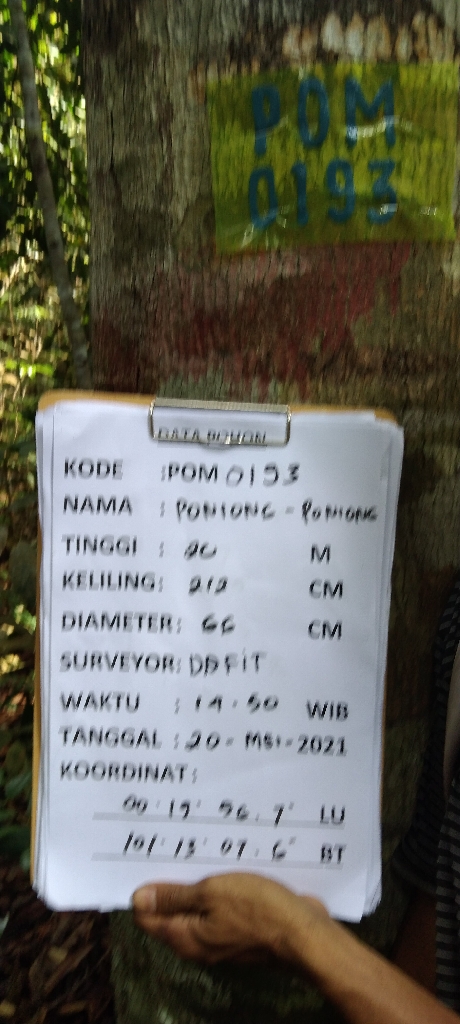 POM
0193
DATA POHON
KODE :POM 0193
NAMA : PONIONG - PONIONG
TINGGI : 20 M
KELILING: 212 CM
DIAMETER: 66 CM
SURVEYOR: DDFiT
WAKTU : 14.50 WIB
TANGGAL : 20 - MEI - 2021
KOORDINAT:
LU
BT